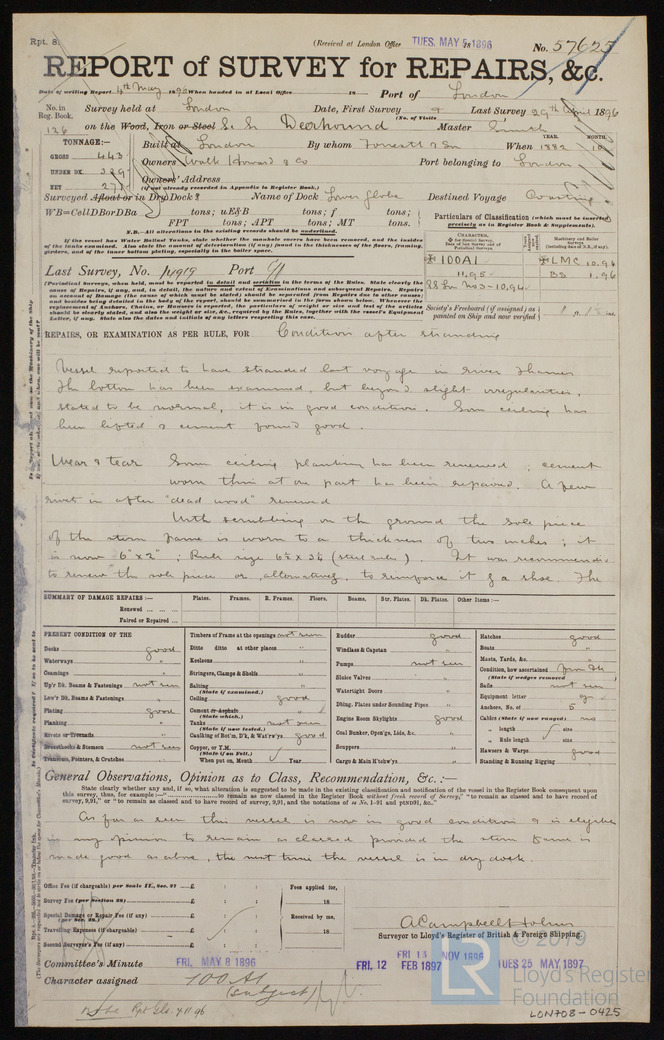 Rpt. 8.
(Received at London Office TUES. MAY 5 1896
No. 57625
REPORT of SURVEY for REPAIRS, &c.
Date of writing Report 4th May 1896 When handed in at Local Office 18 Port of London
No. in Reg. Book. 126
Survey held at London Date, First Survey Last Survey 29th April 1896
(No. of Visits
on the Wood, Iron or Steel S.S. Deerhound Master
TONNAGE:—
GROSS 443
UNDER DK. 329
NET 271
Built at London By whom Forrestt & Son When 1882 10
YEAR. MONTH.
Owners Walk Howard & Co Port belonging to London
Owners' Address
(if not already recorded in Appendix to Register Book.)
Surveyed Afloat or in Dry Dock? Name of Dock Lower Globe Destined Voyage Coasting
WB=CellDBorDBa tons; uE&B tons; f tons;
FPT tons; APT tons; MT tons.
N.B.—All alterations in the existing records should be underlined.
If the vessel has Water Ballast Tanks, state whether the manhole covers have been removed, and the insides
of the tanks examined. Also state the amount of deterioration (if any) found in the thicknesses of the floors, framing,
girders, and of the inner bottom plating, especially in the boiler space.
Particulars of Classification (which must be inserted precisely as in Register Book & Supplements).
CHARACTER.
Machinery and Boiler Surveys
✠ 100A1
11,95
SS Lon No3-10,94
✠ LMC 10.94
BS 1.96
Last Survey, No. Port
(Periodical Surveys, when held, must be reported in detail and seriatim in the terms of the Rules. State clearly the
cause of Repairs, if any, and, in detail, the nature and extent of Examinations and subsequent Repairs. Repairs
on account of Damage (the cause of which must be stated) should be separated from Repairs due to other causes;
and besides being detailed in the body of the report, should be summarised in the form shown below. Whenever the
replacement of Anchors, Chains, or Hawsers is reported, the particulars of weight and size and test of the articles
should be clearly stated, and also the weight or size, &c., required by the Rules, together with the vessel's Equipment
Letter, if any. State also the dates and initials of any letters respecting this case.
Society's Freeboard (if assigned) as painted on Ship and now verified
REPAIRS, OR EXAMINATION AS PER RULE, FOR Condition after stranding
Vessel reported to have stranded last voyage in river Thames
The bottom has been examined, but beyond slight irregularities,
stated to be normal, it is in good condition. Some ceiling has
been lifted & cement found good.
Wear & tear Some ceiling planking has been renewed; cement
worn thin at one part has been repaired. A few
rivets in after "dead wood" renewed
With scrubbing on the ground the sole piece
of the stern frame is worn to a thickness of two inches; it
is now 6" x 2"; Rule size 6½ x 3¼ (steel rules). It was recommended
to renew the sole piece or, alternatively, to reinforce it by a shoe. The
SUMMARY OF DAMAGE REPAIRS:—
Plates. Frames. R. Frames. Floors. Beams. Str. Plates. Dk. Plates. Other Items:—
Renewed
Faired or Repaired
PRESENT CONDITION OF THE
Decks good
Waterways "
Coamings "
Up'r Dk. Beams & Fastenings not seen
Low'r Dk. Beams & Fastenings
Plating good
Planking
Rivets or Treenails
Breasthooks & Stemson not seen
Transoms, Pointers, & Crutches
Timbers of Frame at the openings not seen
Ditto ditto at other places "
Keelsons "
Stringers, Clamps & Shelfs "
Salting
(State if examined.)
Ceiling good
Cement or Asphalt "
(State which.)
Tanks not seen
(State if now tested.)
Caulking of Bot'm, D'k, & Wat'rw'ys good
Copper, or Y.M.
(State if on Felt.)
When put on, Month Year
Rudder good
Windlass & Capstan "
Pumps not seen
Sluice Valves "
Watertight Doors "
Dblng. Plates under Sounding Pipes "
Engine Room Skylights good
Coal Bunker, Open'gs, Lids, &c. "
Scuppers "
Cargo & Main H'tchw'ys "
Hatches good
Boats "
Masts, Yards, &c. "
Condition, how ascertained
(State if wedges removed
Sails not seen
Equipment letter
Anchors, No. of 5
Cables (State if now ranged) no
" length size
" Rule length size
Hawsers & Warps good
Standing & Running Rigging "
General Observations, Opinion as to Class, Recommendation, &c.:—
State clearly whether any, and if so, what alteration is suggested to be made in the existing classification and notification of the vessel in the Register Book consequent upon
this survey, thus, for example:—" to remain as now classed in the Register Book without fresh record of Survey," "to remain as classed and to have record of
survey, 9,91," or "to remain as classed and to have record of survey, 9,91, and the notations of ss No. 1-91 and ptND91, &c."
As far as seen this vessel is now in good condition & is eligible
in my opinion to remain as classed provided the stern frame is
made good as above, the next time the vessel is in dry dock.
Office Fee (if chargeable) per Scale II., Sec. 27 £ : :
Survey Fee (per Section 28) £ : :
Special Damage or Repair Fee (if any) £ : :
(per Sec. 28.)
Travelling Expenses (if chargeable) £ : :
Second Surveyor's Fee (if any) £ : :
Fees applied for,
18
Received by me,
18
A Campbell Holms
Surveyor to Lloyd's Register of British & Foreign Shipping.
Committee's Minute FRI. MAY 8 1896
FRI. 12 FEB 1897
FRI 13 NOV 1896
TUES 25 MAY 1897
Character assigned 100A1
(subject)
© 2019
Lloyd's Register
Foundation
LR
LON708-0425